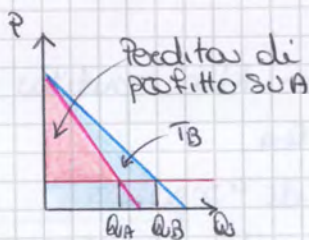 P
Perdita di
profitto SU A
TB
QA QB Qs